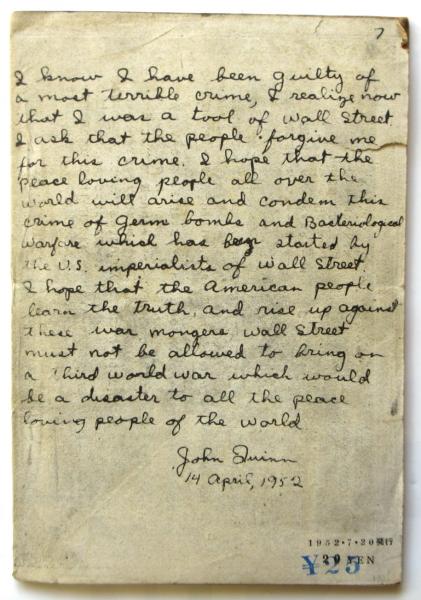 7
I know I have been guilty of
a most terrible crime, I realize now
that I was a tool of Wall Street
I ask that the people forgive me
for this crime. I hope that the
peace loving people all over the
world will arise and condem this
crime of Germ bombs and Bacteriological
Warfare which has been started by
the U.S. imperialists of Wall Street.
I hope that the American people
learn the truth, and rise up against
these war mongers. Wall Street
must not be allowed to bring on
a third world war which would
be a disaster to all the peace
loving people of the world
John Quinn
14 April, 1952
1952・7・20発行
20 YEN
¥25